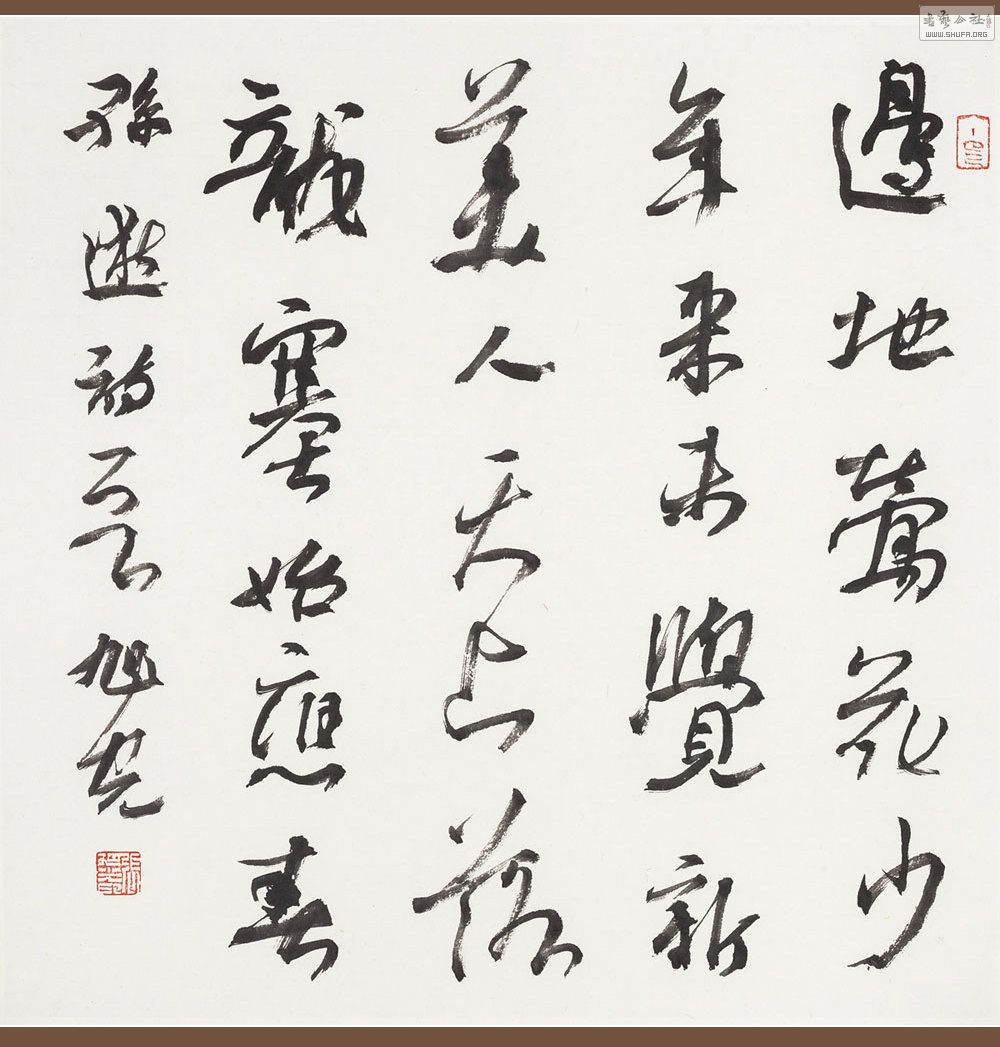 書藝公社
WWW.SHUFA.ORG
邊地鶯花少
年來未覺新
美人天上落
龍塞始應春
孫逖詩 旭光